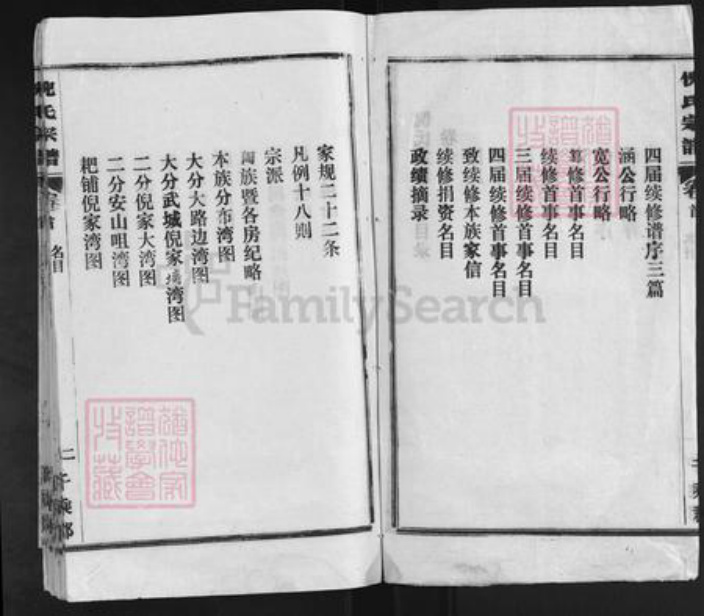 四届续修谱序三篇
涵公行略
宽公行略
首事名目
续修首事名目
三届续修首事名目
四届续修首事名目
致续修本族家信
续修捐资名目
政绩摘录
家规二十二条
凡例十八则
宗派
阖族暨各房纪略
本族分布湾图
大分大路边湾图
大分武城倪家湾图
二分倪家大湾图
二分安山咀湾图
耙铺倪家湾图
倪氏宗谱
卷首
名目
二
千乘郡
倪氏宗谱
卷首
FamilySearch